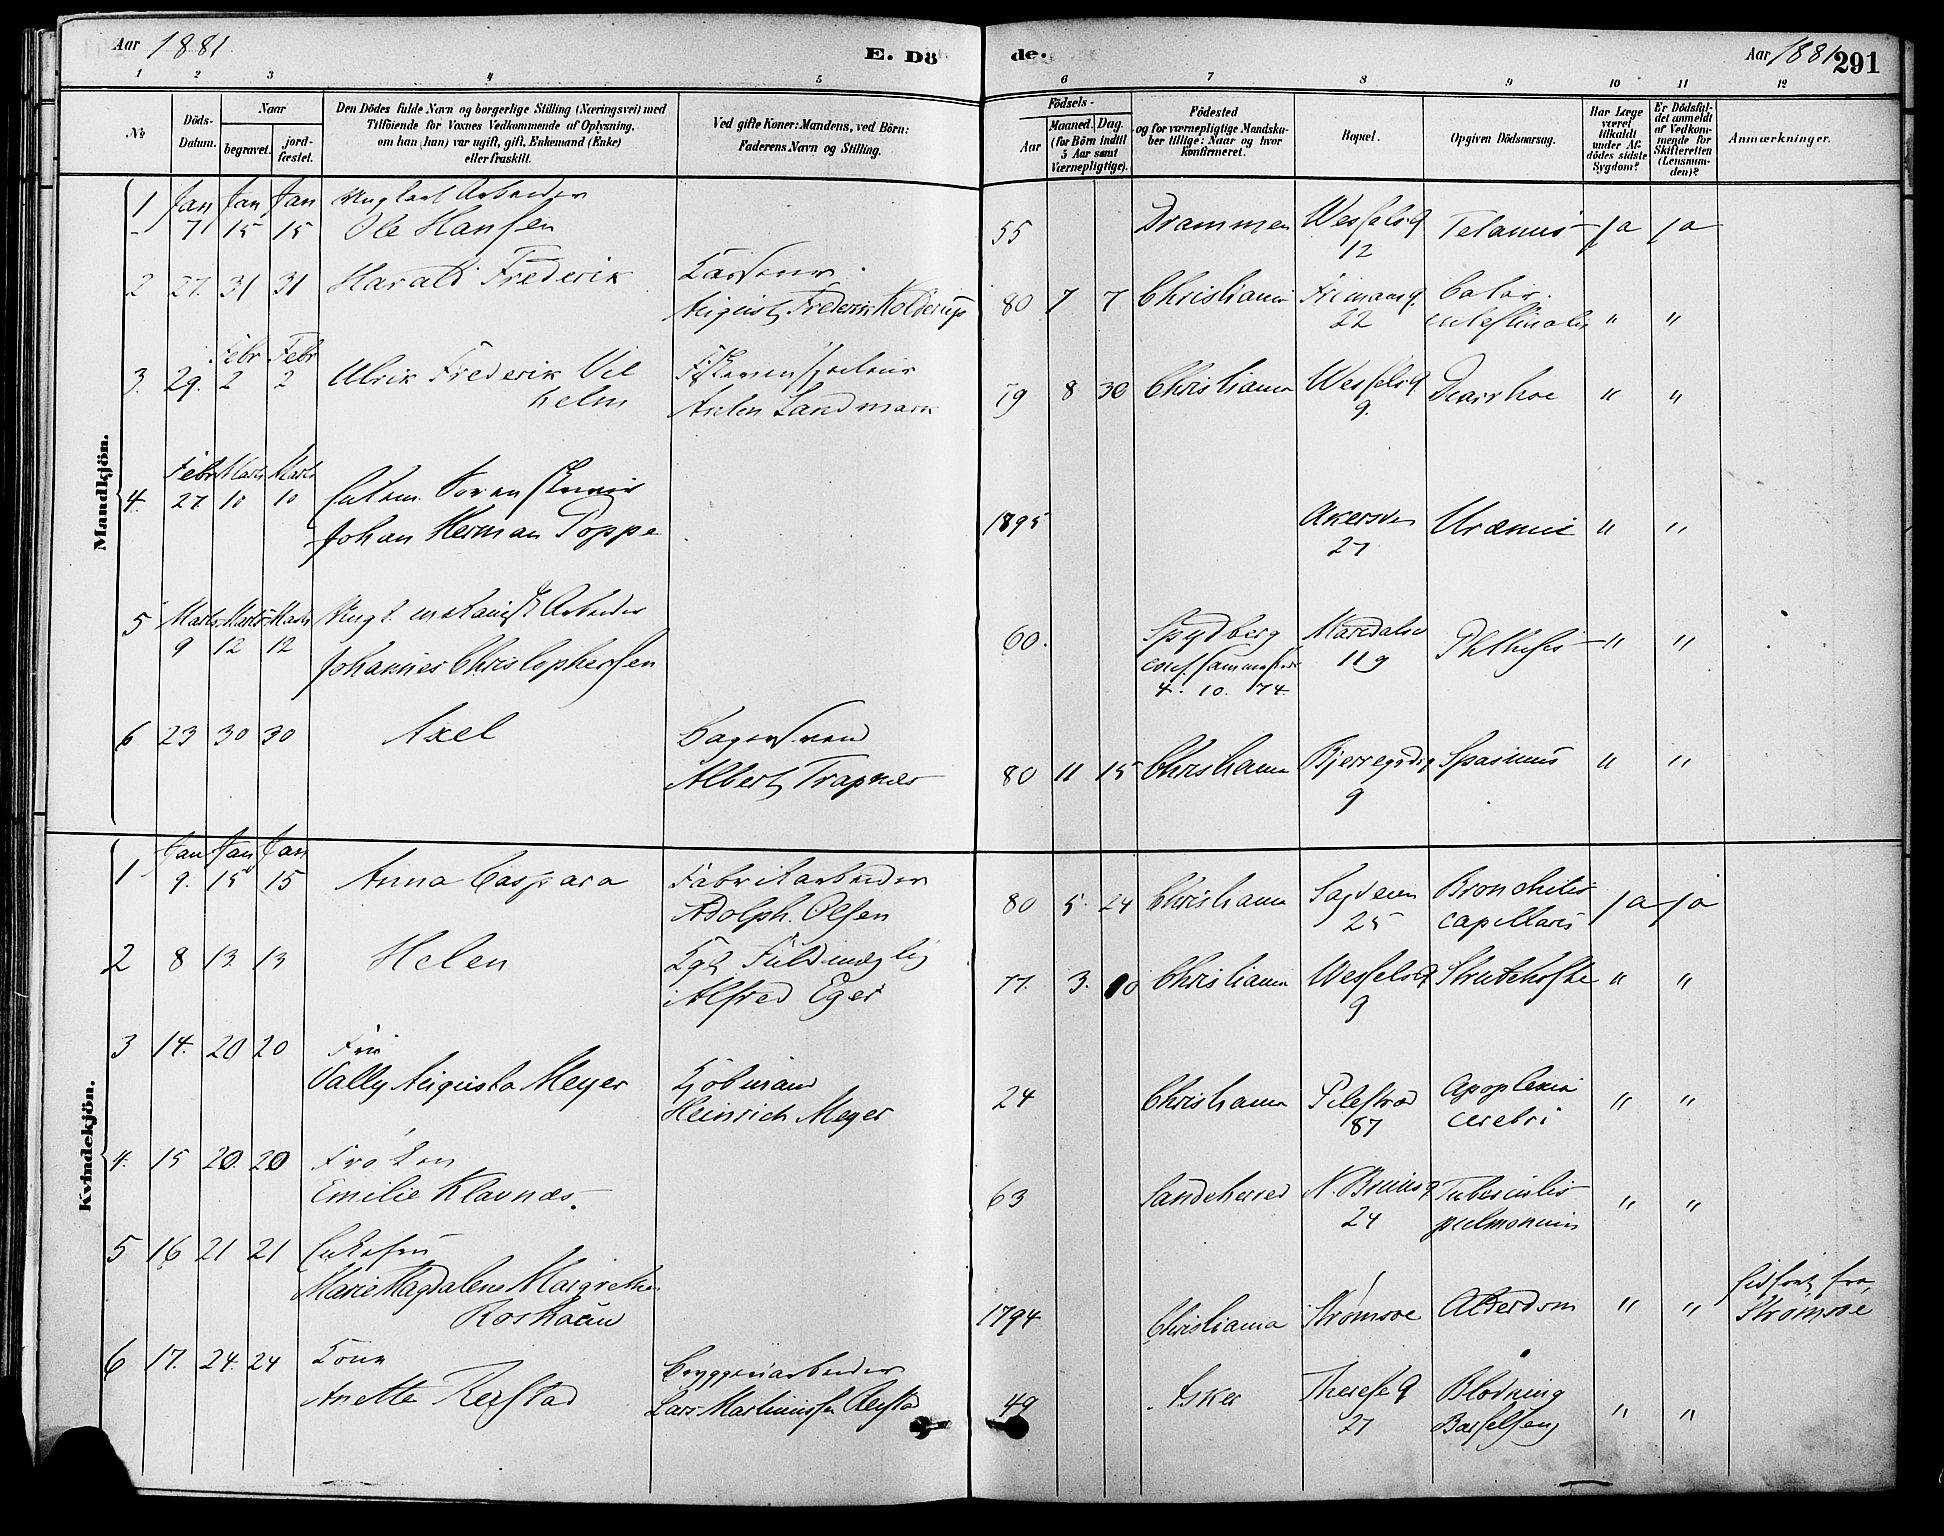 Aar 1881 E. Dö de. Aar 1881 291
1 2 3 4 5 6 7 8 9 10 11 12
No Döds-Datum. Naar begravet. jord-fæstet. Den Dödes fulde Navn og borgerlige Stilling (Næringsvei) med Tilföiende for Voxnes Vedkommende af Oplysning, om han (hun) var ugift, gift, Enkemand (Enke) eller fraskilt. Ved gifte Koner: Mandens, ved Börn: Faderens Navn og Stilling. Födsels- Aar Maaned. Dag. (for Börn indtil 5 Aar samt Værnepligtige). Födested og for værnepligtige Mandskaber tillige: Naar og hvor konfirmeret. Bopæl. Opgiven Dödsaarsag. Har Læge været tilkaldt under Afdödes sidste Sygdom? Er Dödsfaldet anmeldt af Vedkommende for Skifteretten (Lensmanden)? Anmærkninger.
Mandkjön.
1 Jan Jan Jan Arbeider
7 15 15 Ole Hansen 55 Drammen Wesselsg 12 Tetanus ja ja
2 27. 31 31 Harald Frederik
August Frederik Kolderup 80 7 7 Christiania 22 Catar. intestinalis " "
3. 29. Febr 2 Febr 2 Ulrik Frederik Vil
helm Landmark 79 8 30 Christiania Wesselsg 9. Diarrhoe " "
4 Febr 27 Marts 10 Marts 10
Johan Herman Poppe 1895 Akersvn 27 Uræmie " "
5 Marts 9 Marts 12 Marts 12 Arbeider
Johannes Christophersen 60. Spydberg Maridalsv 119 Phthisis " "
4. 10. 74.
6 23 30 30 Axel Bagersvend
Albert Trapnes 80 11 15 Christiania 9 Spasmus " "
Kvindekjön.
1 Jan 9. Jan 15 Jan 15 Anna Caspara Fabrikarbeider
Adolph Olsen 80 5. 24 Christiania Sagveien 25 Bronchitis capillaris ja ja
2 8 13. 13 Helen Fuldmægtig
Alfred Eger 77. 3. 10 Christiania Wesselsg 9 Strubehoste " "
3 14. 20 20 Frü
Vally Augusta Meyer Kjöbmand
Heinrich Meyer 24 Christiania Pilestræd 87 Apoplexia cerebri " "
4. 15 20. 20 Fröken
Emilie Klavnæs. 63 Sandeherred N. Brunsg 24 Tuberculis pulmonum " "
5 16 21 21 Enkefru
Marie Magdalene Margrethe
1794 Christiania Strömsoe Alderdom " " fra Strömsoe
6 17. 24. 24 Kone Bryggeriarbeider
Anette Reistad Lars Martinussen Reistad 49 Asker Therese g 27 Blödning Barselseng " "